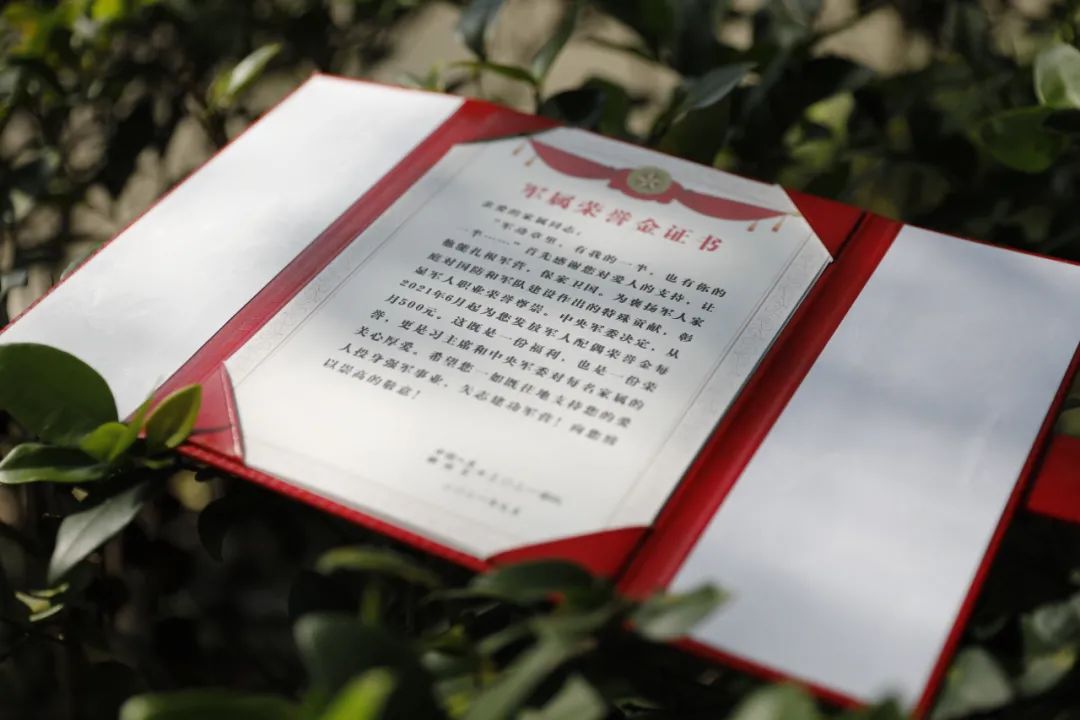 军属荣誉金证书
亲爱的家属同志：
“军功章里，有我的一半，也有你的
一半……”首先感谢您对爱人的支持，让
他能扎根军营，保家卫国。为褒扬军人家
庭对国防和军队建设作出的特殊贡献，彰
显军人职业荣誉尊崇，中央军委决定，从
2021年6月起为您发放军人配偶荣誉金每
月500元。这既是一份福利，也是一份荣
誉，更是习主席和中央军委对每名家属的
关心厚爱。希望您一如既往地支持您的爱
人投身强军事业，矢志建功军营！向您致
以崇高的敬意！